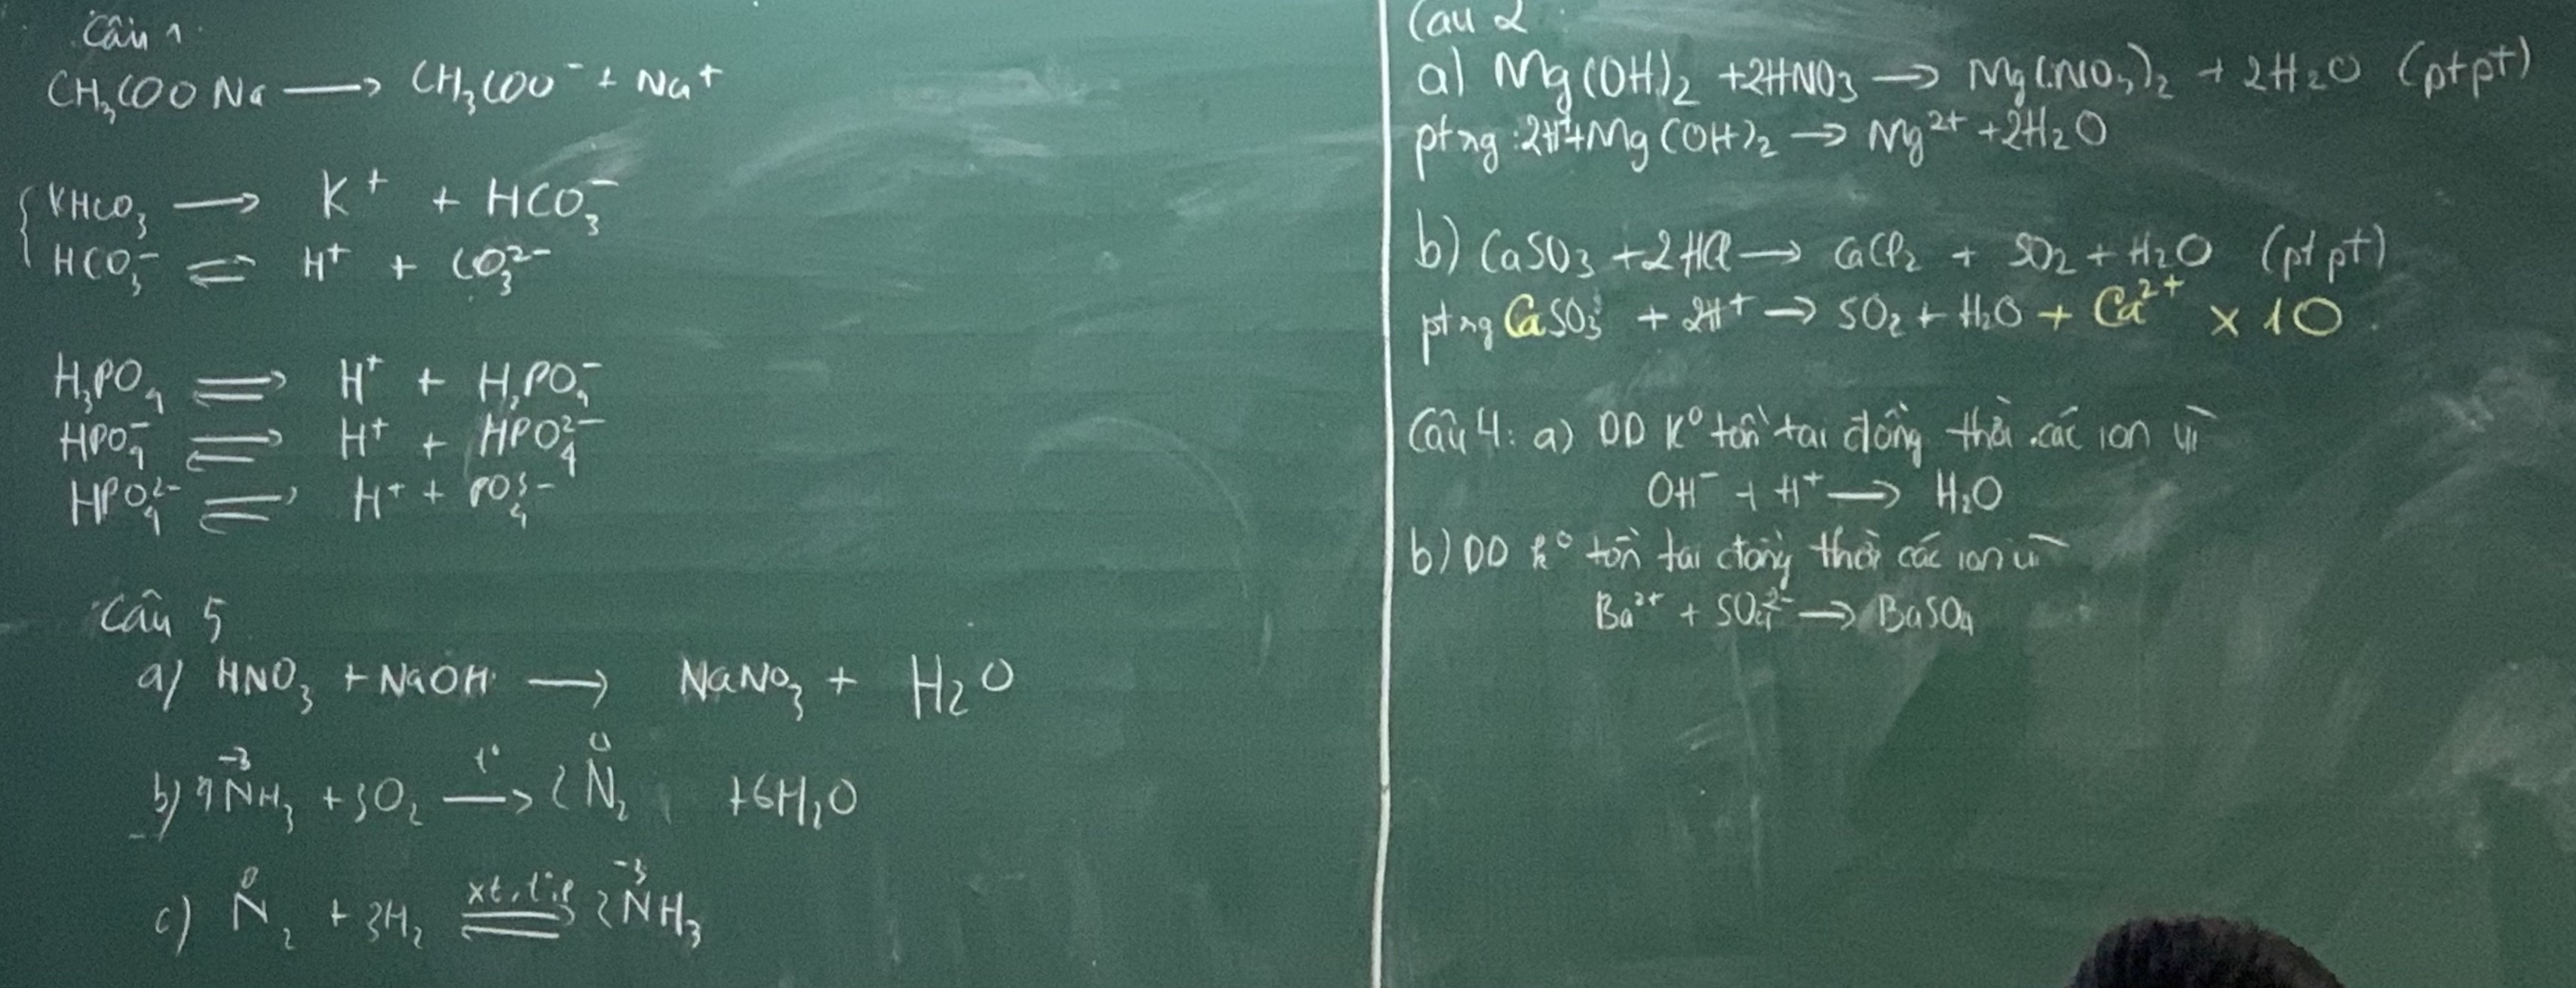 Câu 1
CH₃COONa ⟶ CH₃COO⁻ + Na⁺
KHCO₃ ⟶ K⁺ + HCO₃⁻
HCO₃⁻ ⇌ H⁺ + CO₃²⁻
H₃PO₄ ⇌ H⁺ + H₂PO₄⁻
HPO₄⁻ ⇌ H⁺ + HPO₄²⁻
HPO₄²⁻ ⇌ H⁺ + PO₄³⁻
Câu 5
a) HNO₃ + NaOH ⟶ NaNO₃ + H₂O
-3 t° 0
b) 4NH₃ + 3O₂ ⟶ 2N₂ + 6H₂O
0 xt, t°, p -3
c) N₂ + 3H₂ ⇌ 2NH₃
Câu 2
a) Mg(OH)₂ + 2HNO₃ → Mg(NO₃)₂ + 2H₂O (ptpt)
pt ng: 2H⁺ + Mg(OH)₂ → Mg²⁺ + 2H₂O
b) CaSO₃ + 2HCl → CaCl₂ + SO₂ + H₂O (ptpt)
pt ng CaSO₃ + 2H⁺ → SO₂ + H₂O + Ca²⁺ × 10
Câu 4: a) DD K° tồn tai đồng thời các ion vì
OH⁻ + H⁺ ⟶ H₂O
b) DD k° tồn tai đồng thời các ion vì
Ba²⁺ + SO₄²⁻ ⟶ BaSO₄